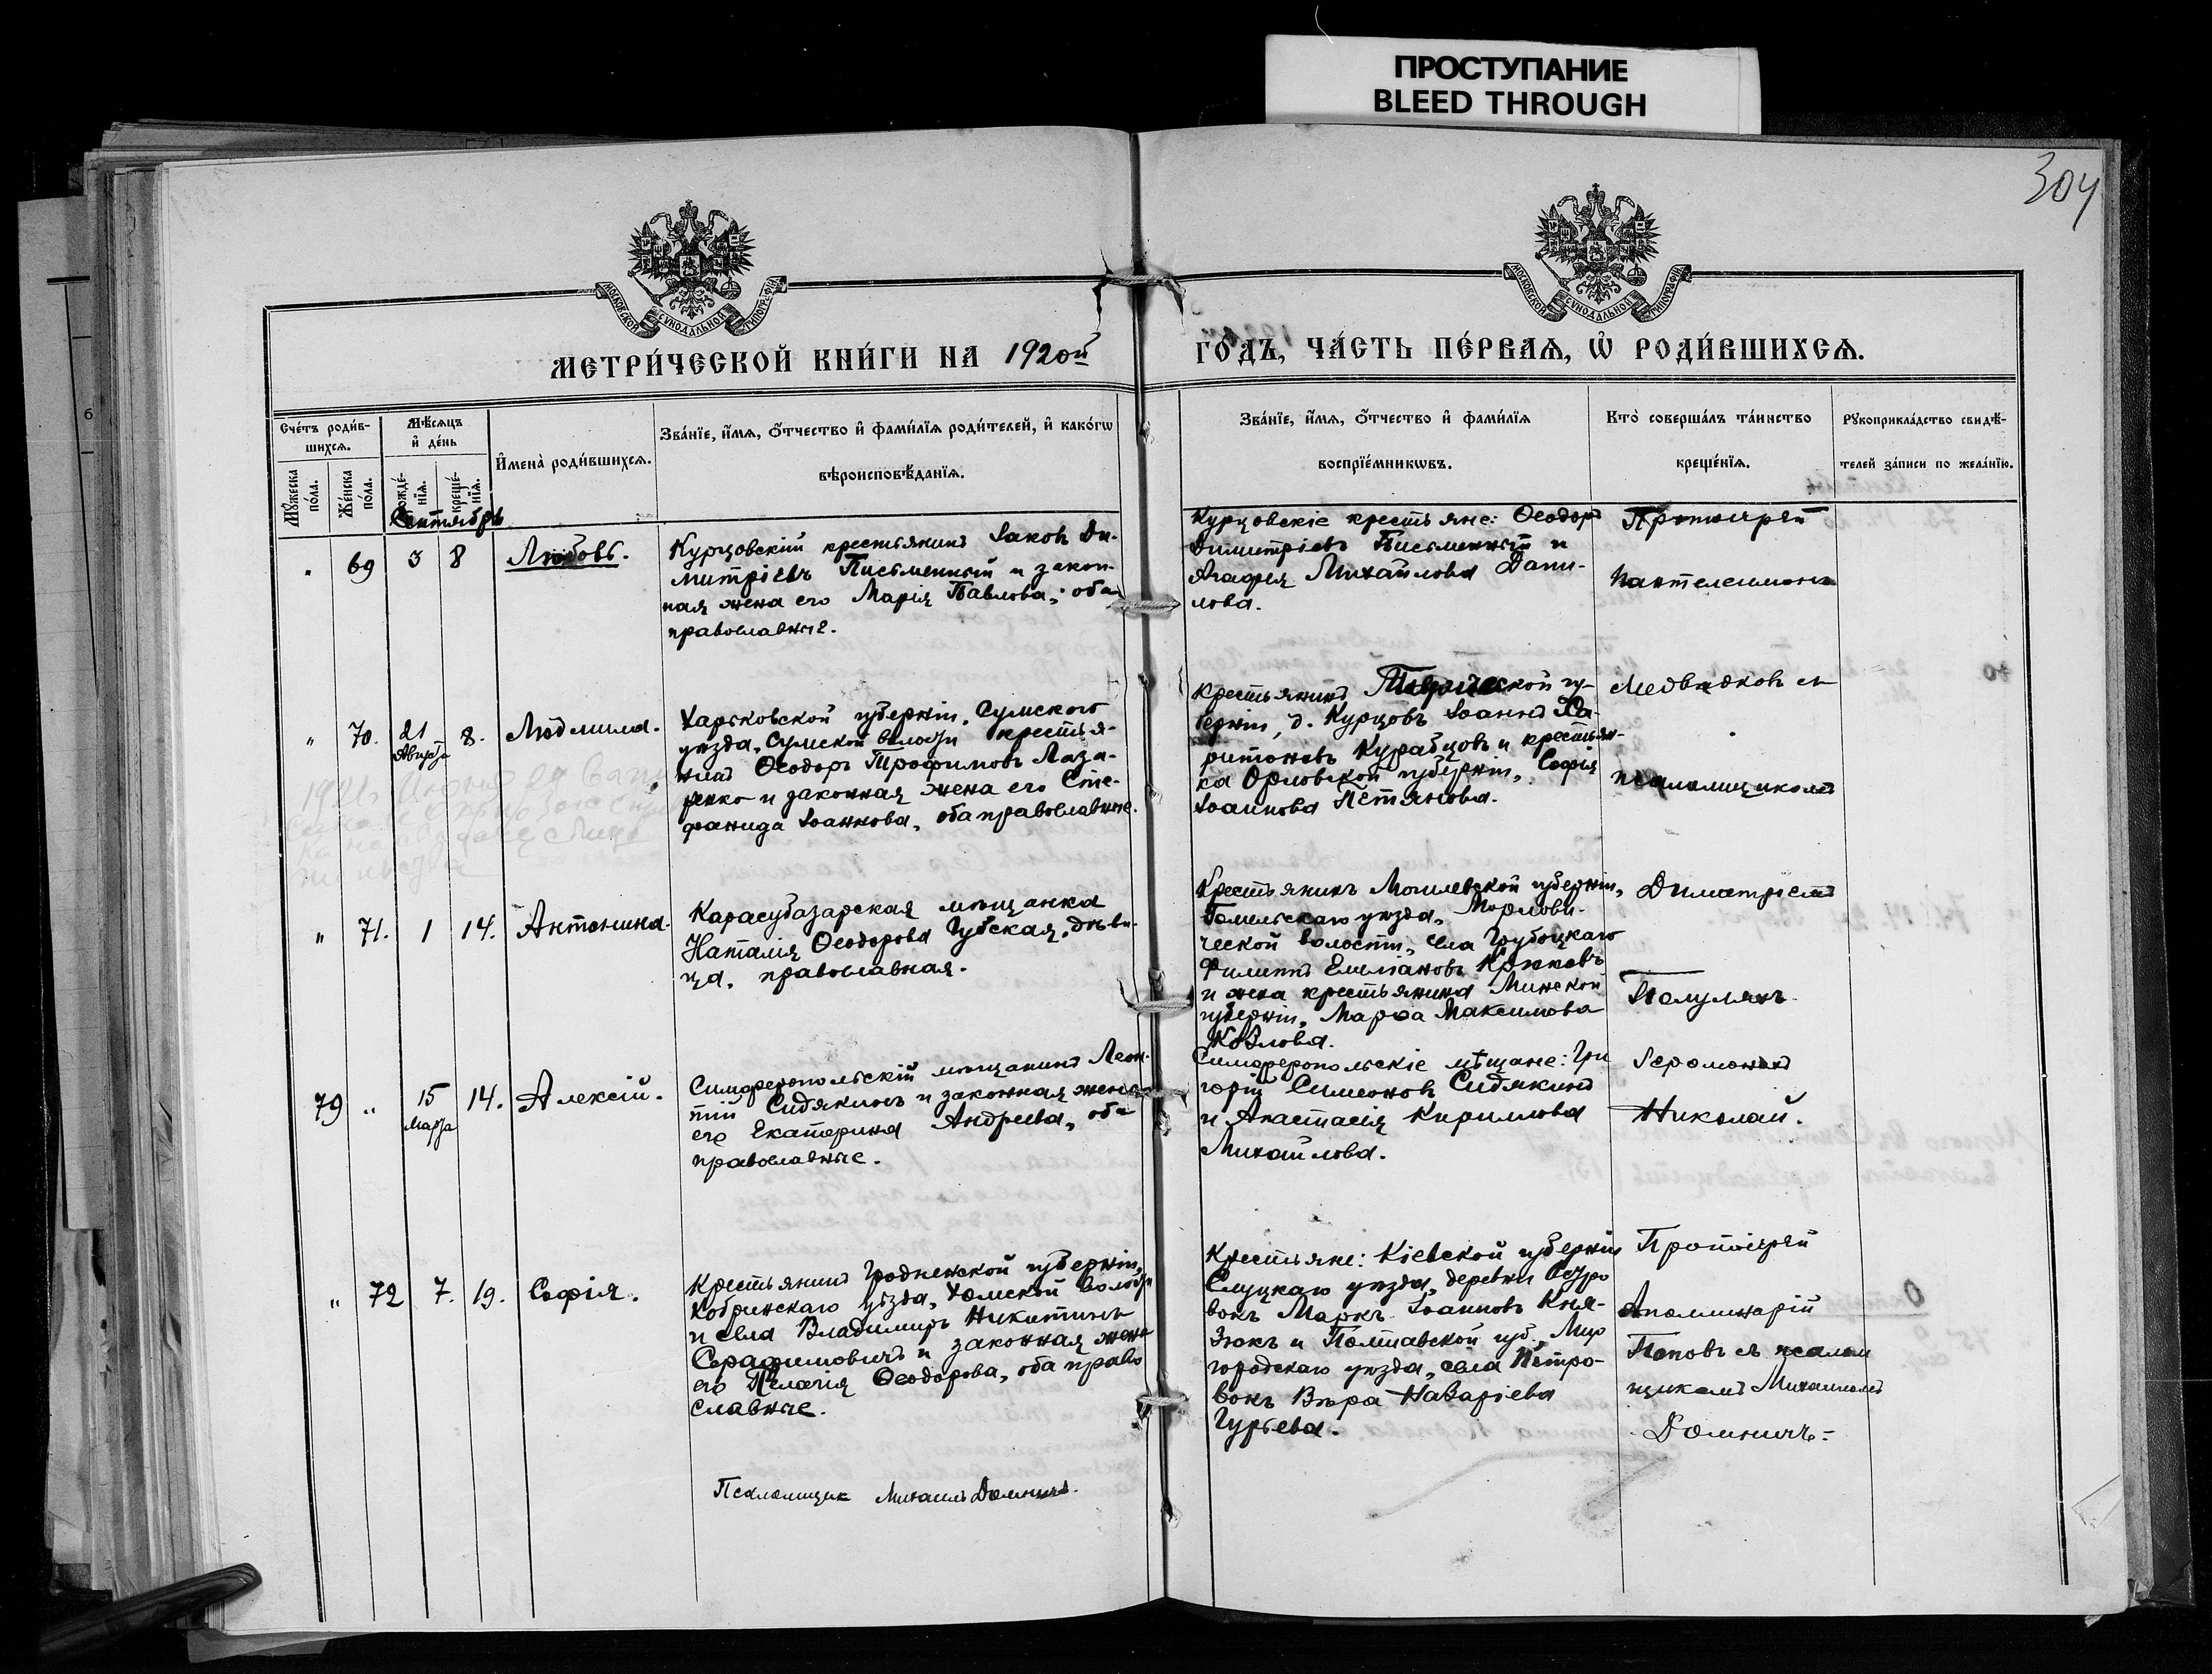 ПРОСТУПАНИЕ
BLEED THROUGH
304
МОСКОВСКОЙ СѴНОДАЛЬНОЙ ТИПОГРАФІИ
МОСКОВСКОЙ СѴНОДАЛЬНОЙ ТИПОГРАФІИ
МЕТРИ́ЧЕСКОЙ КНИ́ГИ НА 1920ой
ГО́ДЪ, ЧА́СТЬ ПЕ́РВАѦ, Ѡ҆ РОДИ́ВШИХСѦ.
Сче́тъ роди́в-
шихсѧ.
Мꙋ́жеска
по́ла.
Же́нска
по́ла.
Мѣ́сѧцъ
и҆ де́нь
рожде́-
нїѧ.
креще́-
нїѧ.
И҆мена̀ роди́вшихсѧ.
Зва́нїе, и҆́мѧ, ѻ҆́тчество и҆ фами́лїѧ роди́телей, и҆ како́гѡ
вѣроисповѣ́данїѧ.
Зва́нїе, и҆́мѧ, ѻ҆́тчество и҆ фами́лїѧ
воспрїе́мникѡвъ.
Кто̀ соверша́лъ та́инство
креще́нїѧ.
Рꙋкоприкла́дство свидѣ́-
телей за́писи по жела́нїю.
Сентябрь
" 69 3 8 Любовь.
Курцовскій крестьянинъ Іаковъ Ди-
митріевъ Письменный и закон-
ная жена его Марія Павлова, оба
православные.
Курцовскіе крестьяне: Ѳеодоръ
Димитріевъ Письменный и
Агафія Михайлова Дани-
лова.
Протоіерей
Пантелеимонъ
" 70. 21 Августа 8. Людмила.
Харьковской губерніи, Сумского
уѣзда, Сумской волости крестья-
нинъ Ѳеодоръ Трофимовъ Лаза-
ренко и законная жена его Сте-
фанида Іоаннова, оба православные.
Крестьянинъ Таврической гу-
берніи, д. Курцовъ Іоаннъ Ха-
ритоновъ Курабцовъ и крестьян-
ка Орловской губерніи, Софія
Іоаннова Петянова.
Медвѣдковъ съ
псаломщикомъ
" 71. 1 14. Антонина.
Карасубазарская мѣщанка
Наталія Ѳеодорова Губская, дѣви-
ца, православная.
Крестьянинъ Могилевской губерніи,
Гомельскаго уѣзда,
ческой волости, села Грубоцкаго
Филиппъ Емеліановъ Крюковъ
и жена крестьянина Минской
губерніи, Марѳа Максимова
Козлова.
Димитріемъ
Полуляхъ
79 " 15 Марта 14. Алексій.
Симферопольскій мѣщанинъ Леон-
тій Сидякинъ и законная жена
его Екатерина Андреева, оба
православные.
Симферопольскіе мѣщане: Гри
горій Симеоновъ Сидякинъ
и Анастасія Кириллова
Михайлова.
Іеромонахъ
Николай.
" 72 7. 19. Софія.
Крестьянинъ Гродненской губерніи,
Кобринскаго уѣзда, Хомской волости
и села Владимиръ Никитинъ
Серафимовичъ и законная жена
его Пелагія Ѳеодорова, оба право
славные.
Крестьяне: Кіевской губерніи
Слуцкаго уѣзда, деревни Остро
вокъ Маркъ Іоанновъ Кня-
зюкъ и Полтавской губ., Мир
городскаго уѣзда, села Петро-
вокъ Вѣра Назаріева
Гурьева.
Протоіерей
Аполлинарій
Поповъ съ псалом
щикомъ Михаиломъ
Домничъ.
Псаломщик Михаилъ Домничъ.